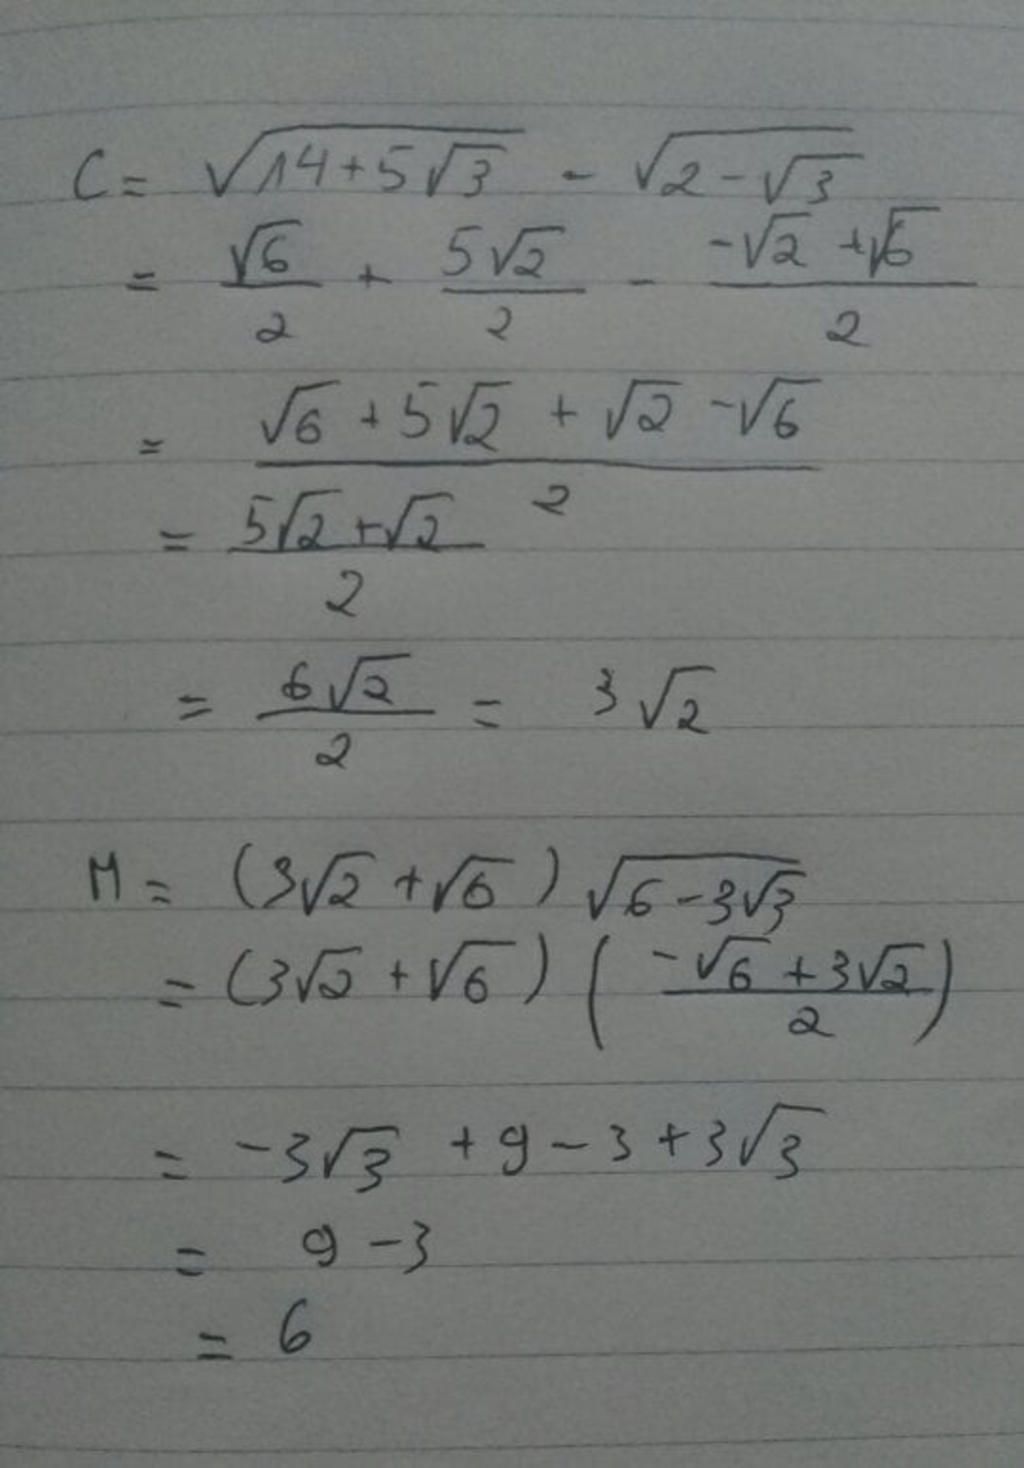 C = √(14+5√3) - √(2-√3)
= √6/2 + 5√2/2 - (-√2+√6)/2
= (√6+5√2+√2-√6)/2
= (5√2+√2)/2
= 6√2/2 = 3√2
M = (3√2+√6)√(6-3√3)
= (3√2+√6)((-√6+3√2)/2)
= -3√3+9-3+3√3
= 9-3
= 6